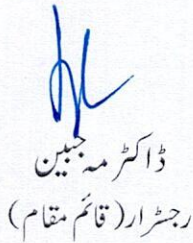 ڈاکٹر مہ جبین
رجسٹرار (قائم مقام)